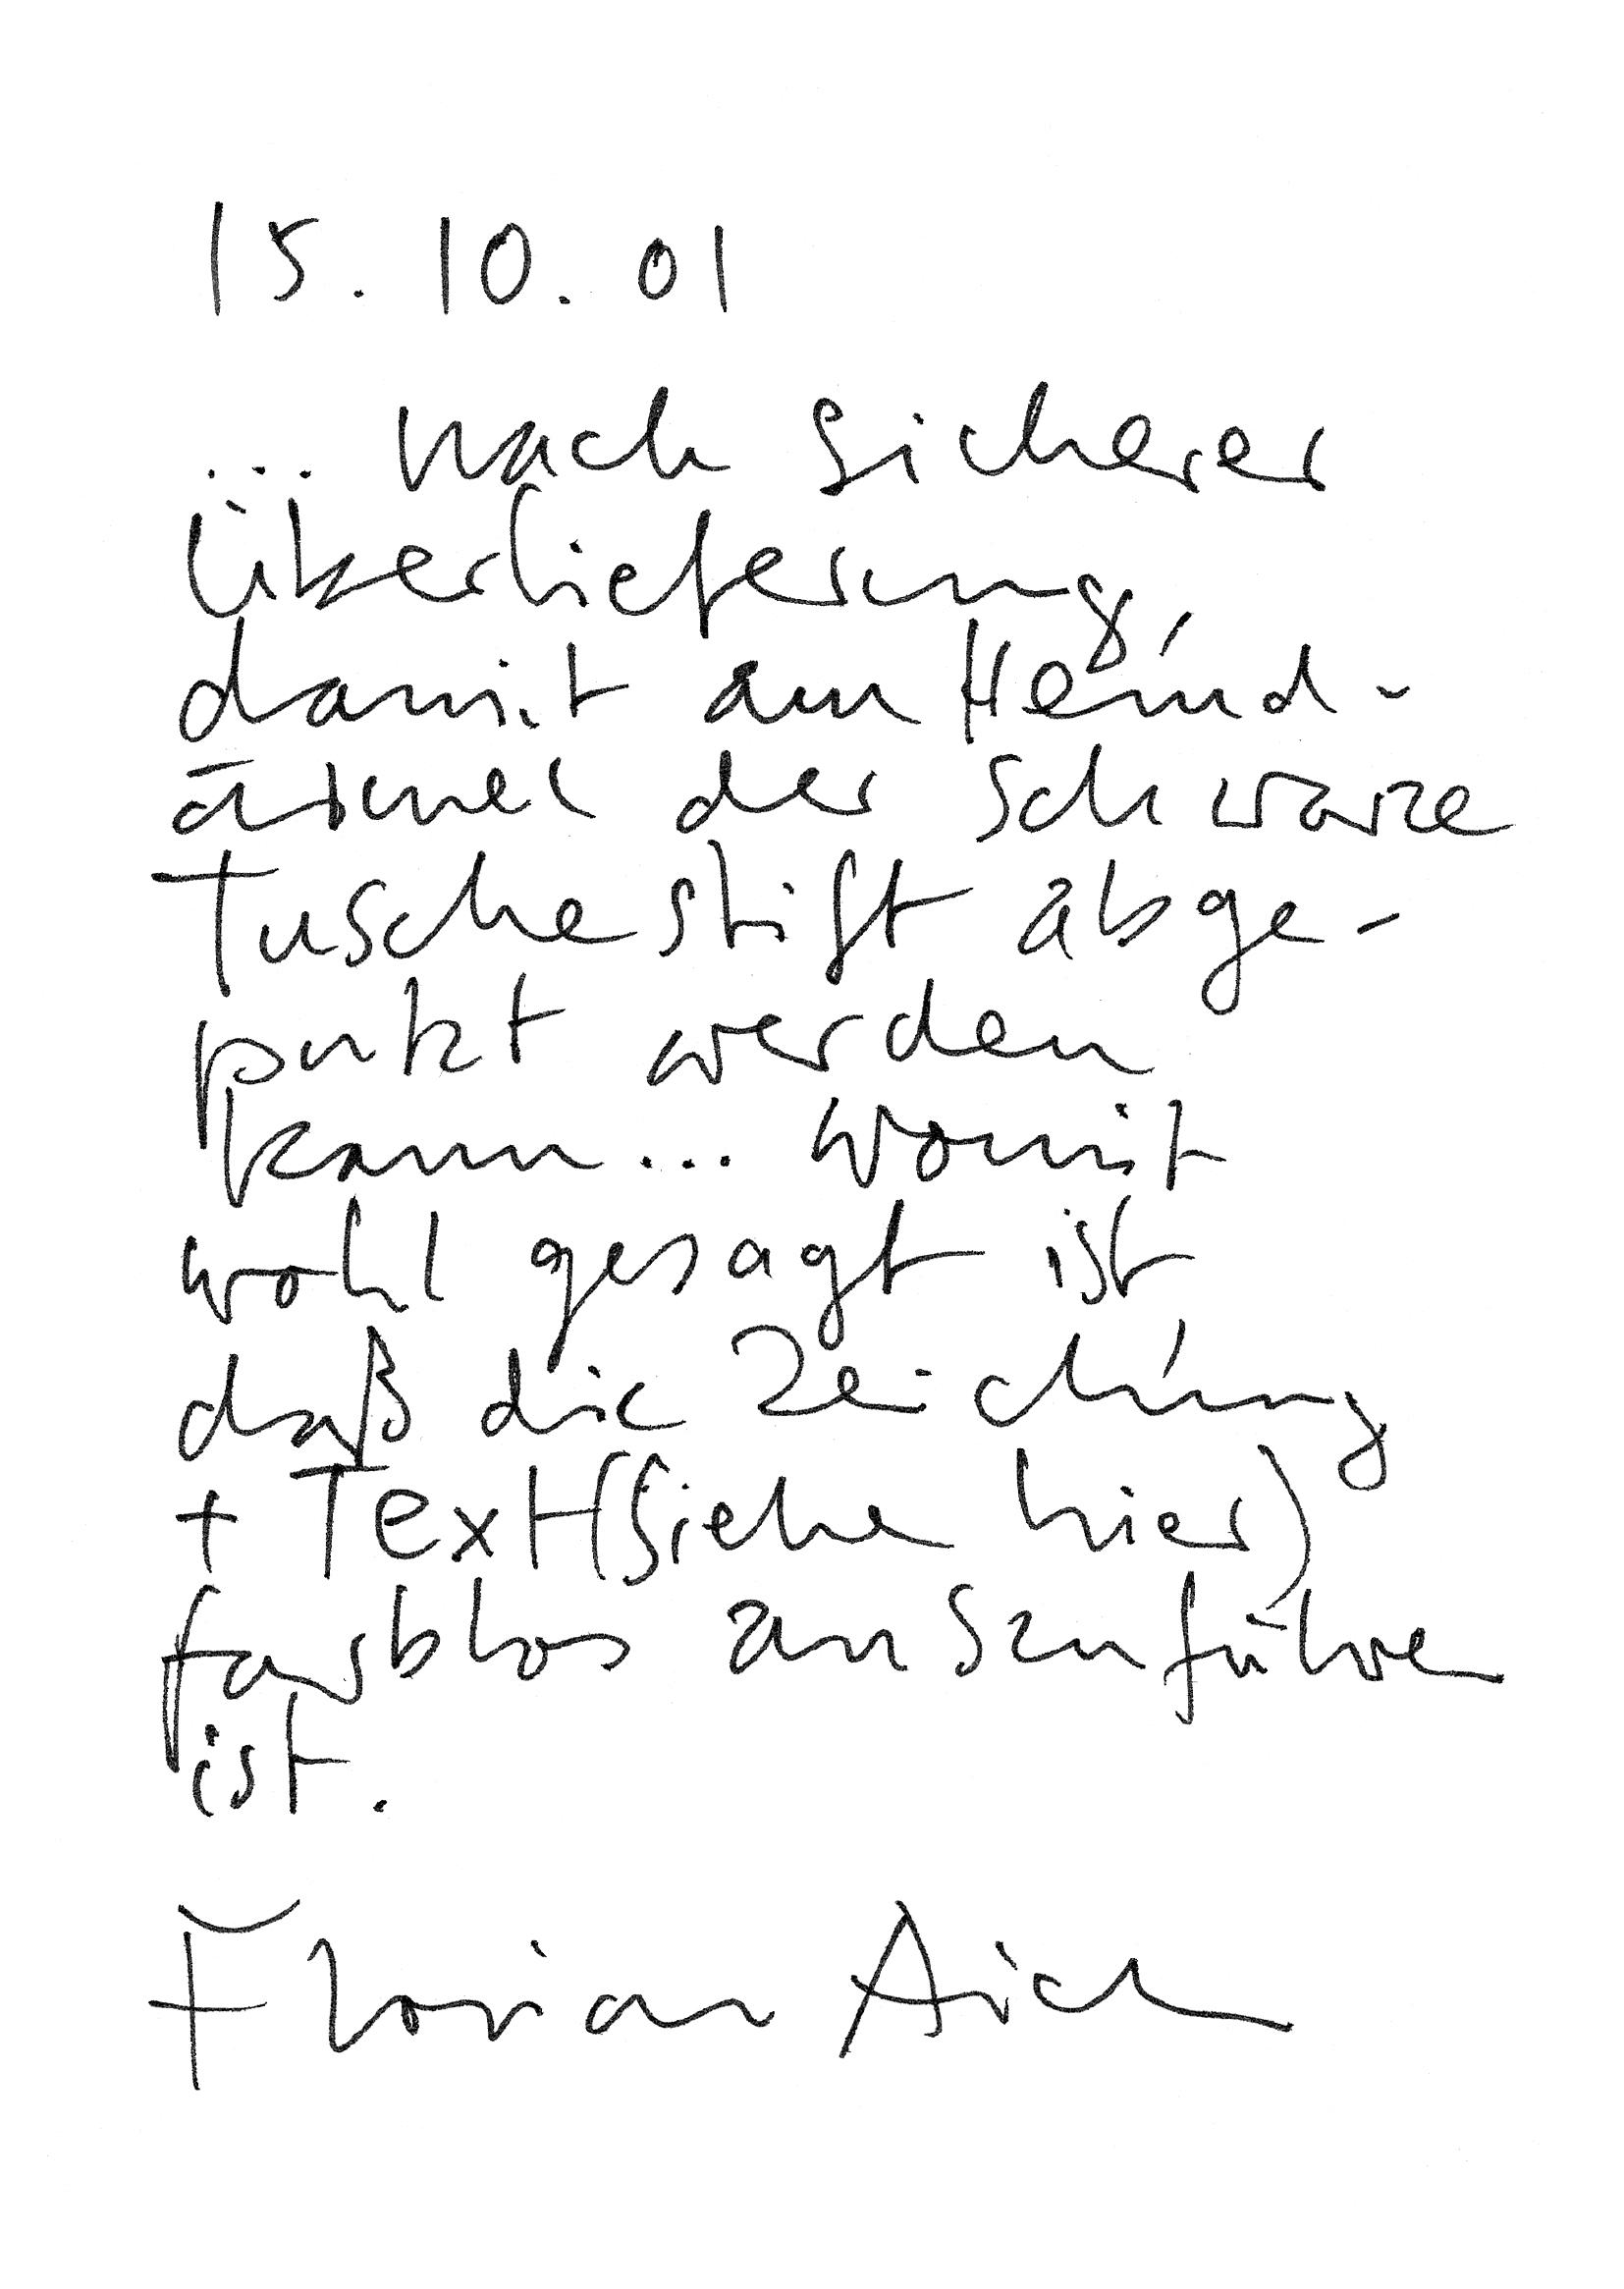 15.10.01
... nach sicherer
Überlieferung,
damit am Hemd-
ärmel der schwarze
Tuschestift abge-
putzt werden
kann... womit
wohl gesagt ist
daß die Zeichnung
+ Text (siehe hier)
farblos auszuführen
ist.
Florian Aich